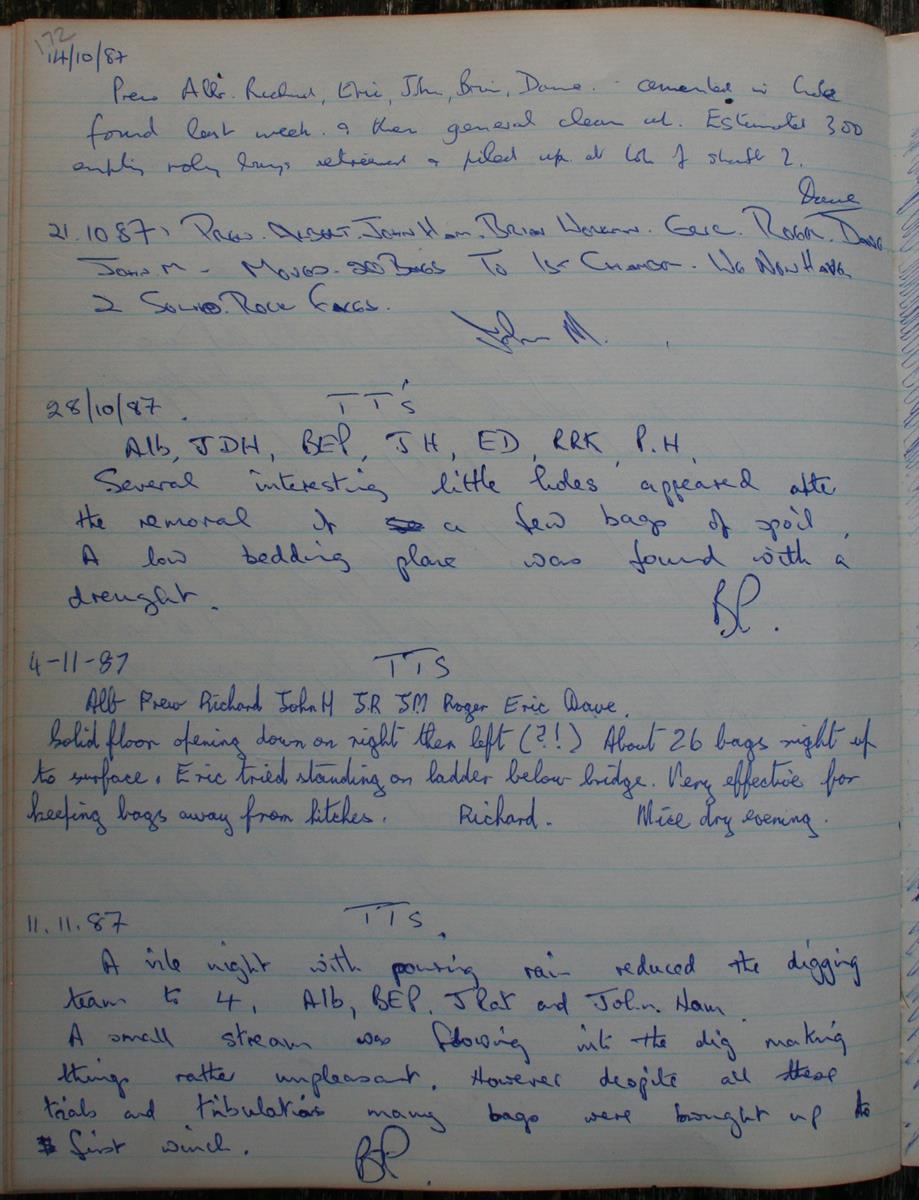 172
14/10/87
Prew Alb. Richard, Eric, John, Brian, Dave. cemented in hole
found last week. & then general clean up. Estimated 300
empty bags retrieved & piled up at bottom of shaft 2.
Dave
21.10 87. Prew. Albert. John Ham. Brian Workman. Eric. Roger. Dave
John. M - Moved. 200 Bags To 1st Chamber. We Now Have
2 Solid. Rock Faces.
John M.
28/10/87. TT's
Alb, JDH, BEP, JH, ED, RRK, P.H.
Several interesting little holes appeared after
the removal of a few bags of spoil
A low bedding plane was found with a
draught. BP.
4-11-87 TTS
Alb Prew Richard John H J.R JM Roger Eric Dave.
Solid floor opening down on right then left (?!) About 26 bags right up
to surface. Eric tried standing on ladder below bridge. Very effective for
keeping bags away from hitches. Richard. Nice dry evening.
11.11.87 TTS.
A vile night with pouring rain reduced the digging
team to 4, Alb, BEP, JRat and John. Ham.
A small stream was flowing into the dig making
things rather unpleasant. However despite all these
trials and tribulations many bags were brought up to
first winch. BP.